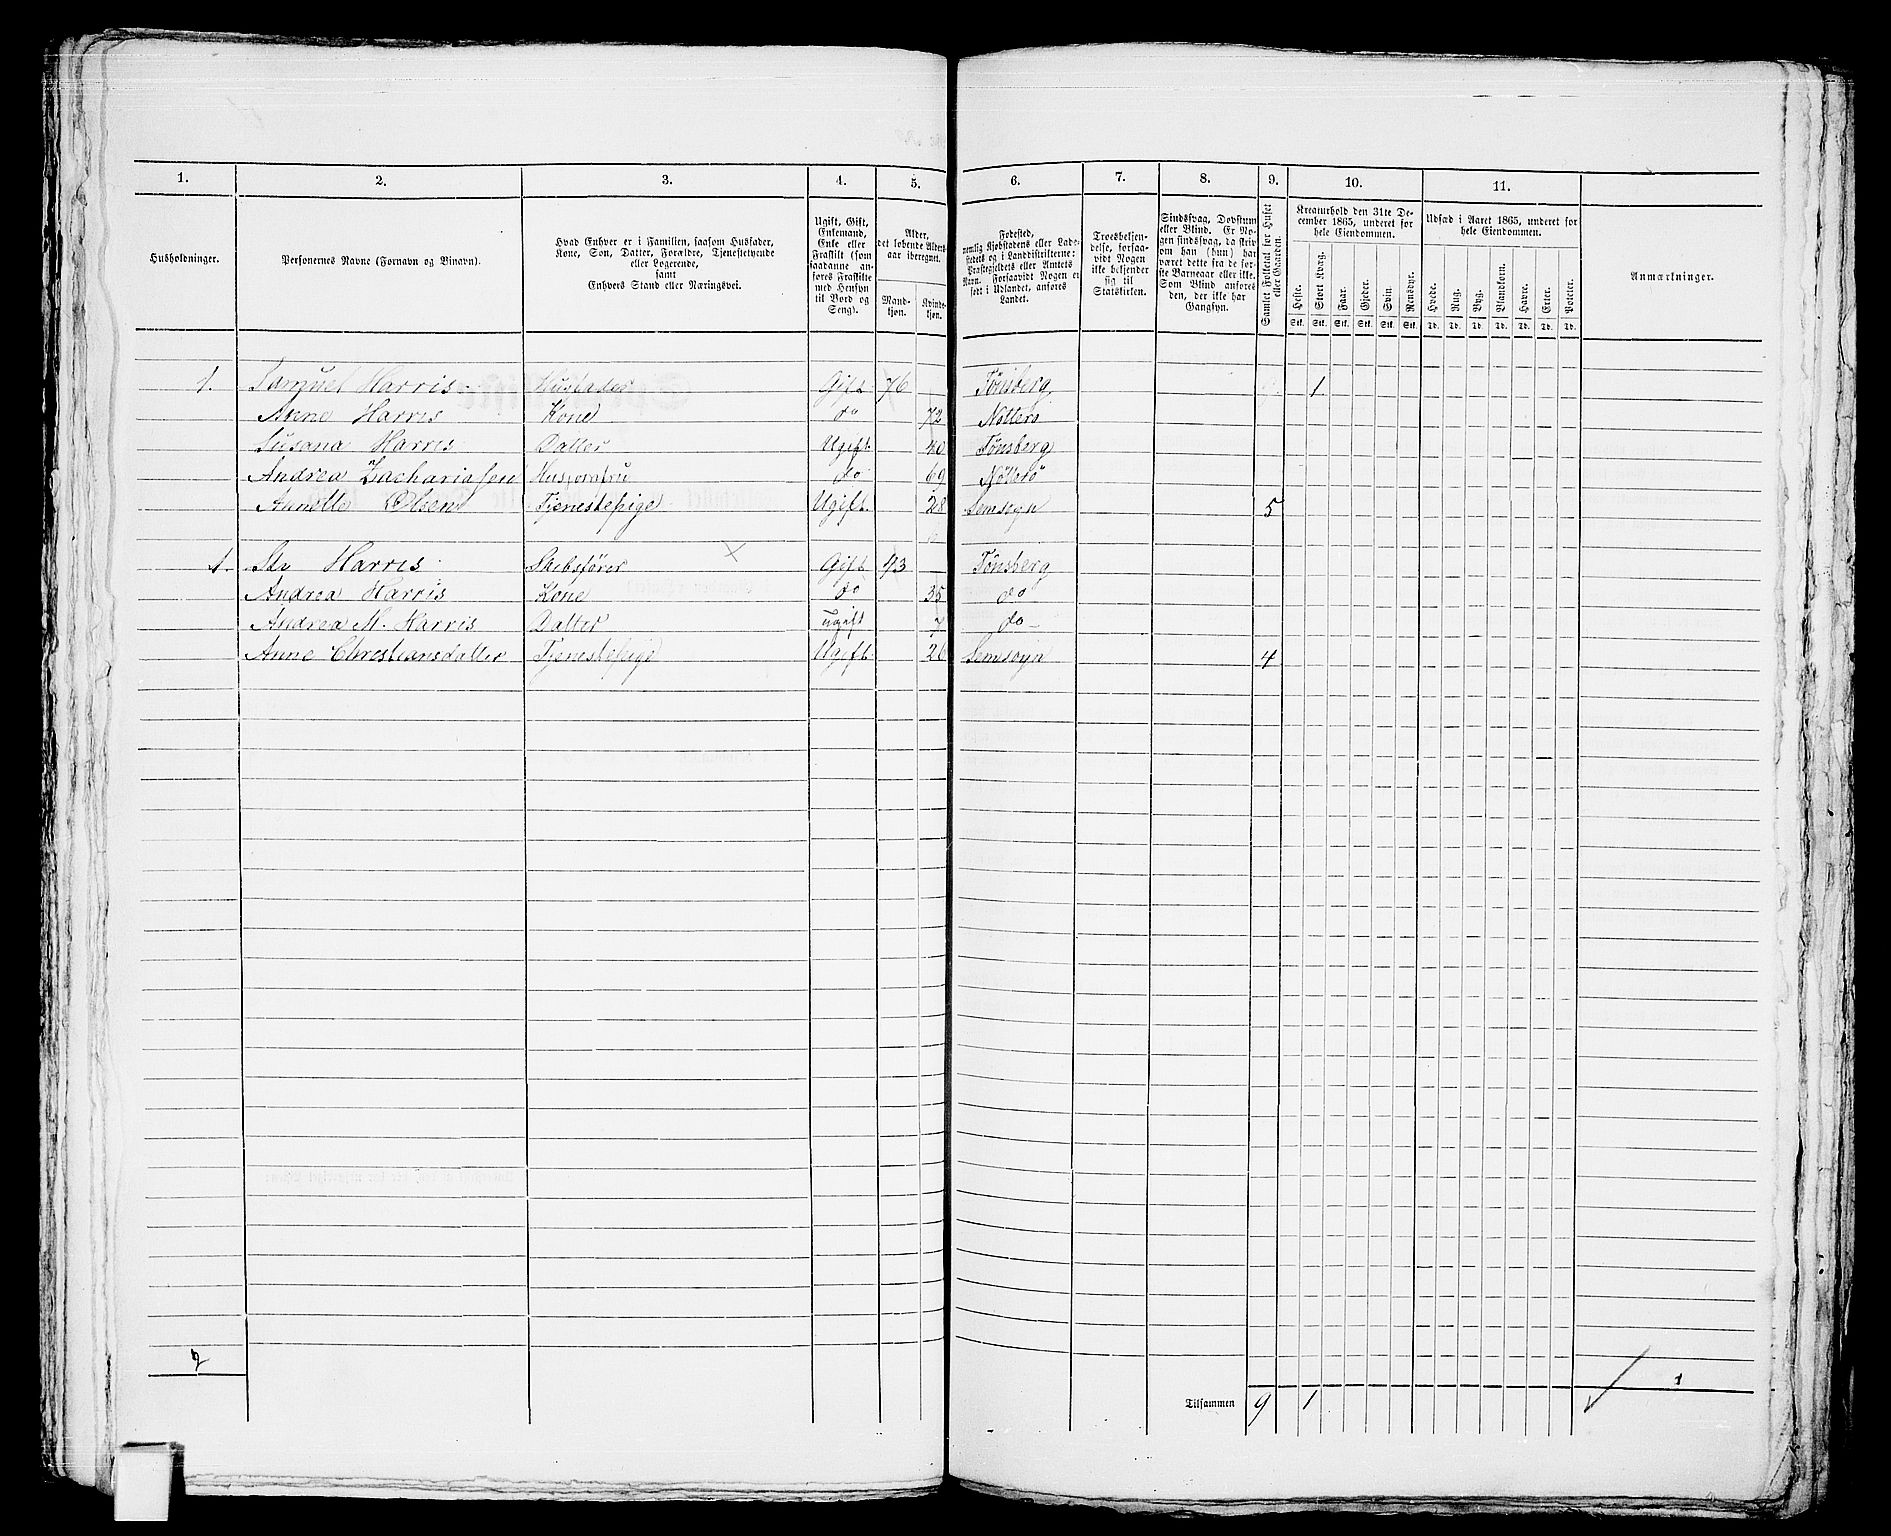 1. 2. 3. 4. 5. 6. 7. 8. 9. 10. 11.
Husholdninger.
Personernes Navne (Fornavn og Vinavn).
Hvad Enhver er i Familien, saasom Husfader,
Kone, Søn, Datter, Forældre, Tjenestetyende
eller Logerende,
samt
Enhvers Stand eller Næringsvei.
Ugift, Gift,
Enkemand,
Enke eller
Fraskilt (som
saadanne an-
føres Fraskilte
med Hensyn
til Bord og
Seng).
Alder,
det løbende Alders-
aar iberegnet.
Mand-
kjøn.
Kvinde-
kjøn.
Fødested,
nemlig Kjøbstadens eller Lade-
stedets og i Landdistrikterne:
Præstegjeldets eller Amtets
Navn. Forsaavidt Nogen er
født i Udlandet, anføres
Landet.
Troesbekjen-
delse, forsaa-
vidt Nogen
ikke bekjender
sig til
Statskirken.
Sindssvag, Døvstum
eller Blind. Er No-
gen sindssvag, da skriv
om han (hun) har
været dette fra de før-
ste Barneaar eller ikke.
Som Blind anføres
den, der ikke har
Gangsyn.
Samlet Folketal for Huset
eller Gaarden.
Kreaturhold den 31te De-
cember 1865, underet for
hele Eiendommen.
Heste. Stort Kvæg. Faar. Gjeder. Svin. Rensdyr.
Stk. Stk. Stk. Stk. Stk. Stk.
Udsæd i Aaret 1865, underet for
hele Eiendommen.
Hvede. Rug. Byg. Blandkorn. Havre. Erter. Poteter.
Td. Td. Td. Td. Td. Td. Td.
Anmærkninger.
1. Samuel Harris Husfader Gift 76 Tønsberg 1
Anne Harris Kone do 72 Nøtterø
Susana Harris Datter Ugift 40 Tønsberg
Andrea Zachariasen do 69 Nøtterø
Anette Olsen Tjenestepige Ugift 28 Semsogn 5
1. Harris Skibsfører Gift 43 Tønsberg
Andrea Harris Kone do 35 do
Andrea M. Harris Datter ugift 7 do
Anne Christiansdatter Tjenestepige Ugift 26 Semsogn 4
2
1
Tilsammen 9 1